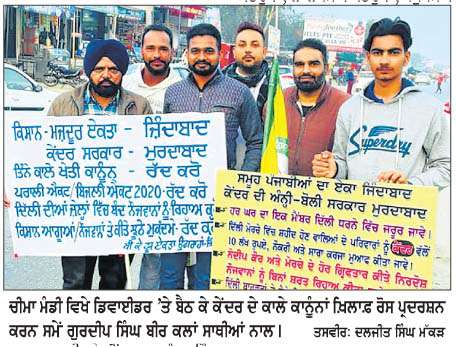 ਕਿਸਾਨ - ਮਜ਼ਦੂਰ ਏਕਤਾ - ਜ਼ਿੰਦਾਬਾਦ
ਕੇਂਦਰ ਸਰਕਾਰ - ਮੁਰਦਾਬਾਦ
ਤਿੰਨੇ ਕਾਲੇ ਖੇਤੀ ਕਾਨੂੰਨ - ਰੱਦ ਕਰੋ
ਪਰਾਲੀ ਐਕਟ/ਬਿਜਲੀ ਐਕਟ 2020 - ਰੱਦ ਕਰੋ
ਦਿੱਲੀ ਦੀਆਂ ਜੇਲ੍ਹਾਂ ਵਿੱਚ ਬੰਦ ਨੌਜਵਾਨਾਂ ਨੂੰ ਰਿਹਾਅ ਕਰੋ
ਕਿਸਾਨ ਆਗੂਆਂ/ਨੌਜਵਾਨਾਂ ਤੇ ਕੀਤੇ ਝੂਠੇ ਮੁਕੱਦਮੇ - ਰੱਦ
ਏਕਤਾ ਉਗਰਾਹਾਂ
ਸਮੂਹ ਪੰਜਾਬੀਆਂ ਦਾ ਏਕਾ ਜ਼ਿੰਦਾਬਾਦ
ਕੇਂਦਰ ਦੀ ਅੰਨੀ-ਬੋਲੀ ਸਰਕਾਰ ਮੁਰਦਾਬਾਦ
ਹਰ ਘਰ ਦਾ ਇਕ ਮੈਂਬਰ ਦਿੱਲੀ ਧਰਨੇ ਵਿੱਚ ਜਰੂਰ ਜਾਵੇ।
ਦਿੱਲੀ ਮੋਰਚੇ ਵਿੱਚ ਸ਼ਹੀਦ ਹੋਣ ਵਾਲਿਆਂ ਦੇ ਪਰਿਵਾਰਾਂ ਨੂੰ ਕੇਂਦਰ ਵੱਲੋਂ
10 ਲੱਖ ਰੁਪਏ, ਨੌਕਰੀ ਅਤੇ ਸਾਰਾ ਕਰਜਾ ਮੁਆਫ ਕੀਤਾ ਜਾਵੇ।
ਨੌਦੀਪ ਕੌਰ ਅਤੇ ਮੋਰਚੇ ਦੇ ਹੋਰ ਗ੍ਰਿਫਤਾਰ ਕੀਤੇ ਨਿਰਦੋਸ਼
ਨੌਜਵਾਨਾਂ ਨੂੰ ਬਿਨਾਂ ਸ਼ਰਤ ਰਿਹਾਅ ਕੀਤਾ ਜਾਵੇ।
ਚੀਮਾ ਮੰਡੀ ਵਿਖੇ ਡਿਵਾਈਡਰ 'ਤੇ ਬੈਠ ਕੇ ਕੇਂਦਰ ਦੇ ਕਾਲੇ ਕਾਨੂੰਨਾਂ ਖ਼ਿਲਾਫ਼ ਰੋਸ ਪ੍ਰਦਰਸ਼ਨ
ਕਰਨ ਸਮੇਂ ਗੁਰਦੀਪ ਸਿੰਘ ਬੀਰ ਕਲਾਂ ਸਾਥੀਆਂ ਨਾਲ। ਤਸਵੀਰ: ਦਲਜੀਤ ਸਿੰਘ ਮੱਕੜ